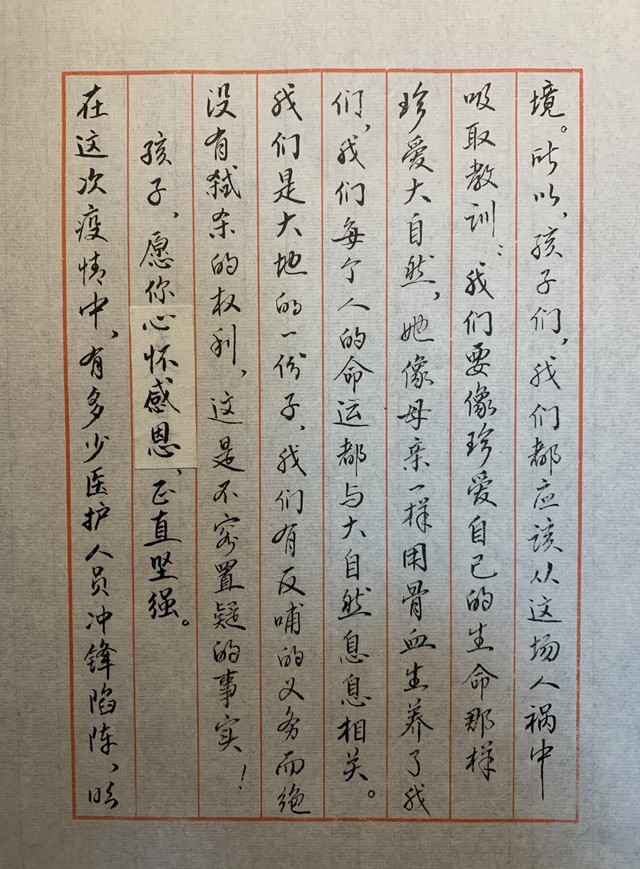 境。所以，孩子们，我们都应该从这场人祸中
吸取教训：我们要像珍爱自己的生命那样
珍爱大自然，她像母亲一样用骨血生养了我
们，我们每个人的命运都与大自然息息相关。
我们是大地的一份子，我们有反哺的义务而绝
没有弑杀的权利，这是不容置疑的事实！
孩子，愿你心怀感恩，正直坚强。
在这次疫情中，有多少医护人员冲锋陷阵，